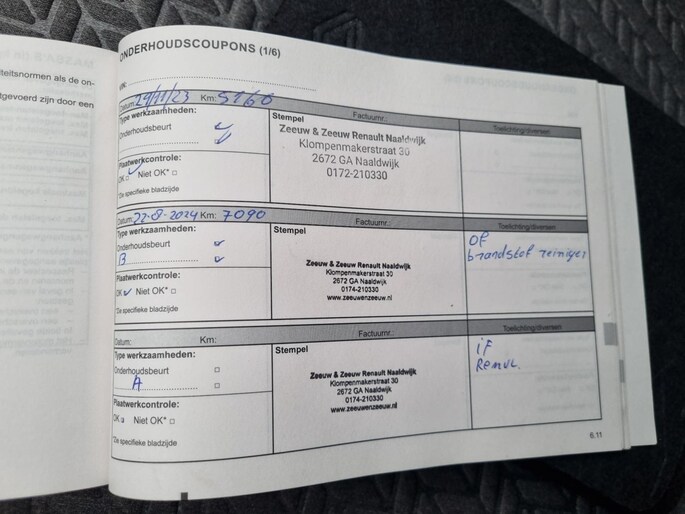 teitsnormen als de on-
tgevoerd zijn door een
ONDERHOUDSCOUPONS (1/6)
VIN:
Datum: 29/11/23 Km: 5160
Factuurnr.:
Toelichting/diversen
Type werkzaamheden:
Onderhoudsbeurt
Stempel
Zeeuw & Zeeuw Renault Naaldwijk
Klompenmakerstraat 30
2672 GA Naaldwijk
0172-210330
Plaatwerkcontrole:
OK Niet OK*
*De specifieke bladzijde
Datum: 22-8-2024 Km: 7090
Factuurnr.:
Toelichting/diversen
Type werkzaamheden:
Onderhoudsbeurt
B
Stempel
Zeeuw & Zeeuw Renault Naaldwijk
Klompenmakerstraat 30
2672 GA Naaldwijk
0174-210330
www.zeeuwenzeeuw.nl
OF
brandstof reiniger
Plaatwerkcontrole:
OK Niet OK*
*De specifieke bladzijde
Datum: Km:
Factuurnr.:
Toelichting/diversen
Type werkzaamheden:
Onderhoudsbeurt
A
Stempel
Zeeuw & Zeeuw Renault Naaldwijk
Klompenmakerstraat 30
2672 GA Naaldwijk
0174-210330
www.zeeuwenzeeuw.nl
iF
Plaatwerkcontrole:
OK Niet OK*
*De specifieke bladzijde
6.11